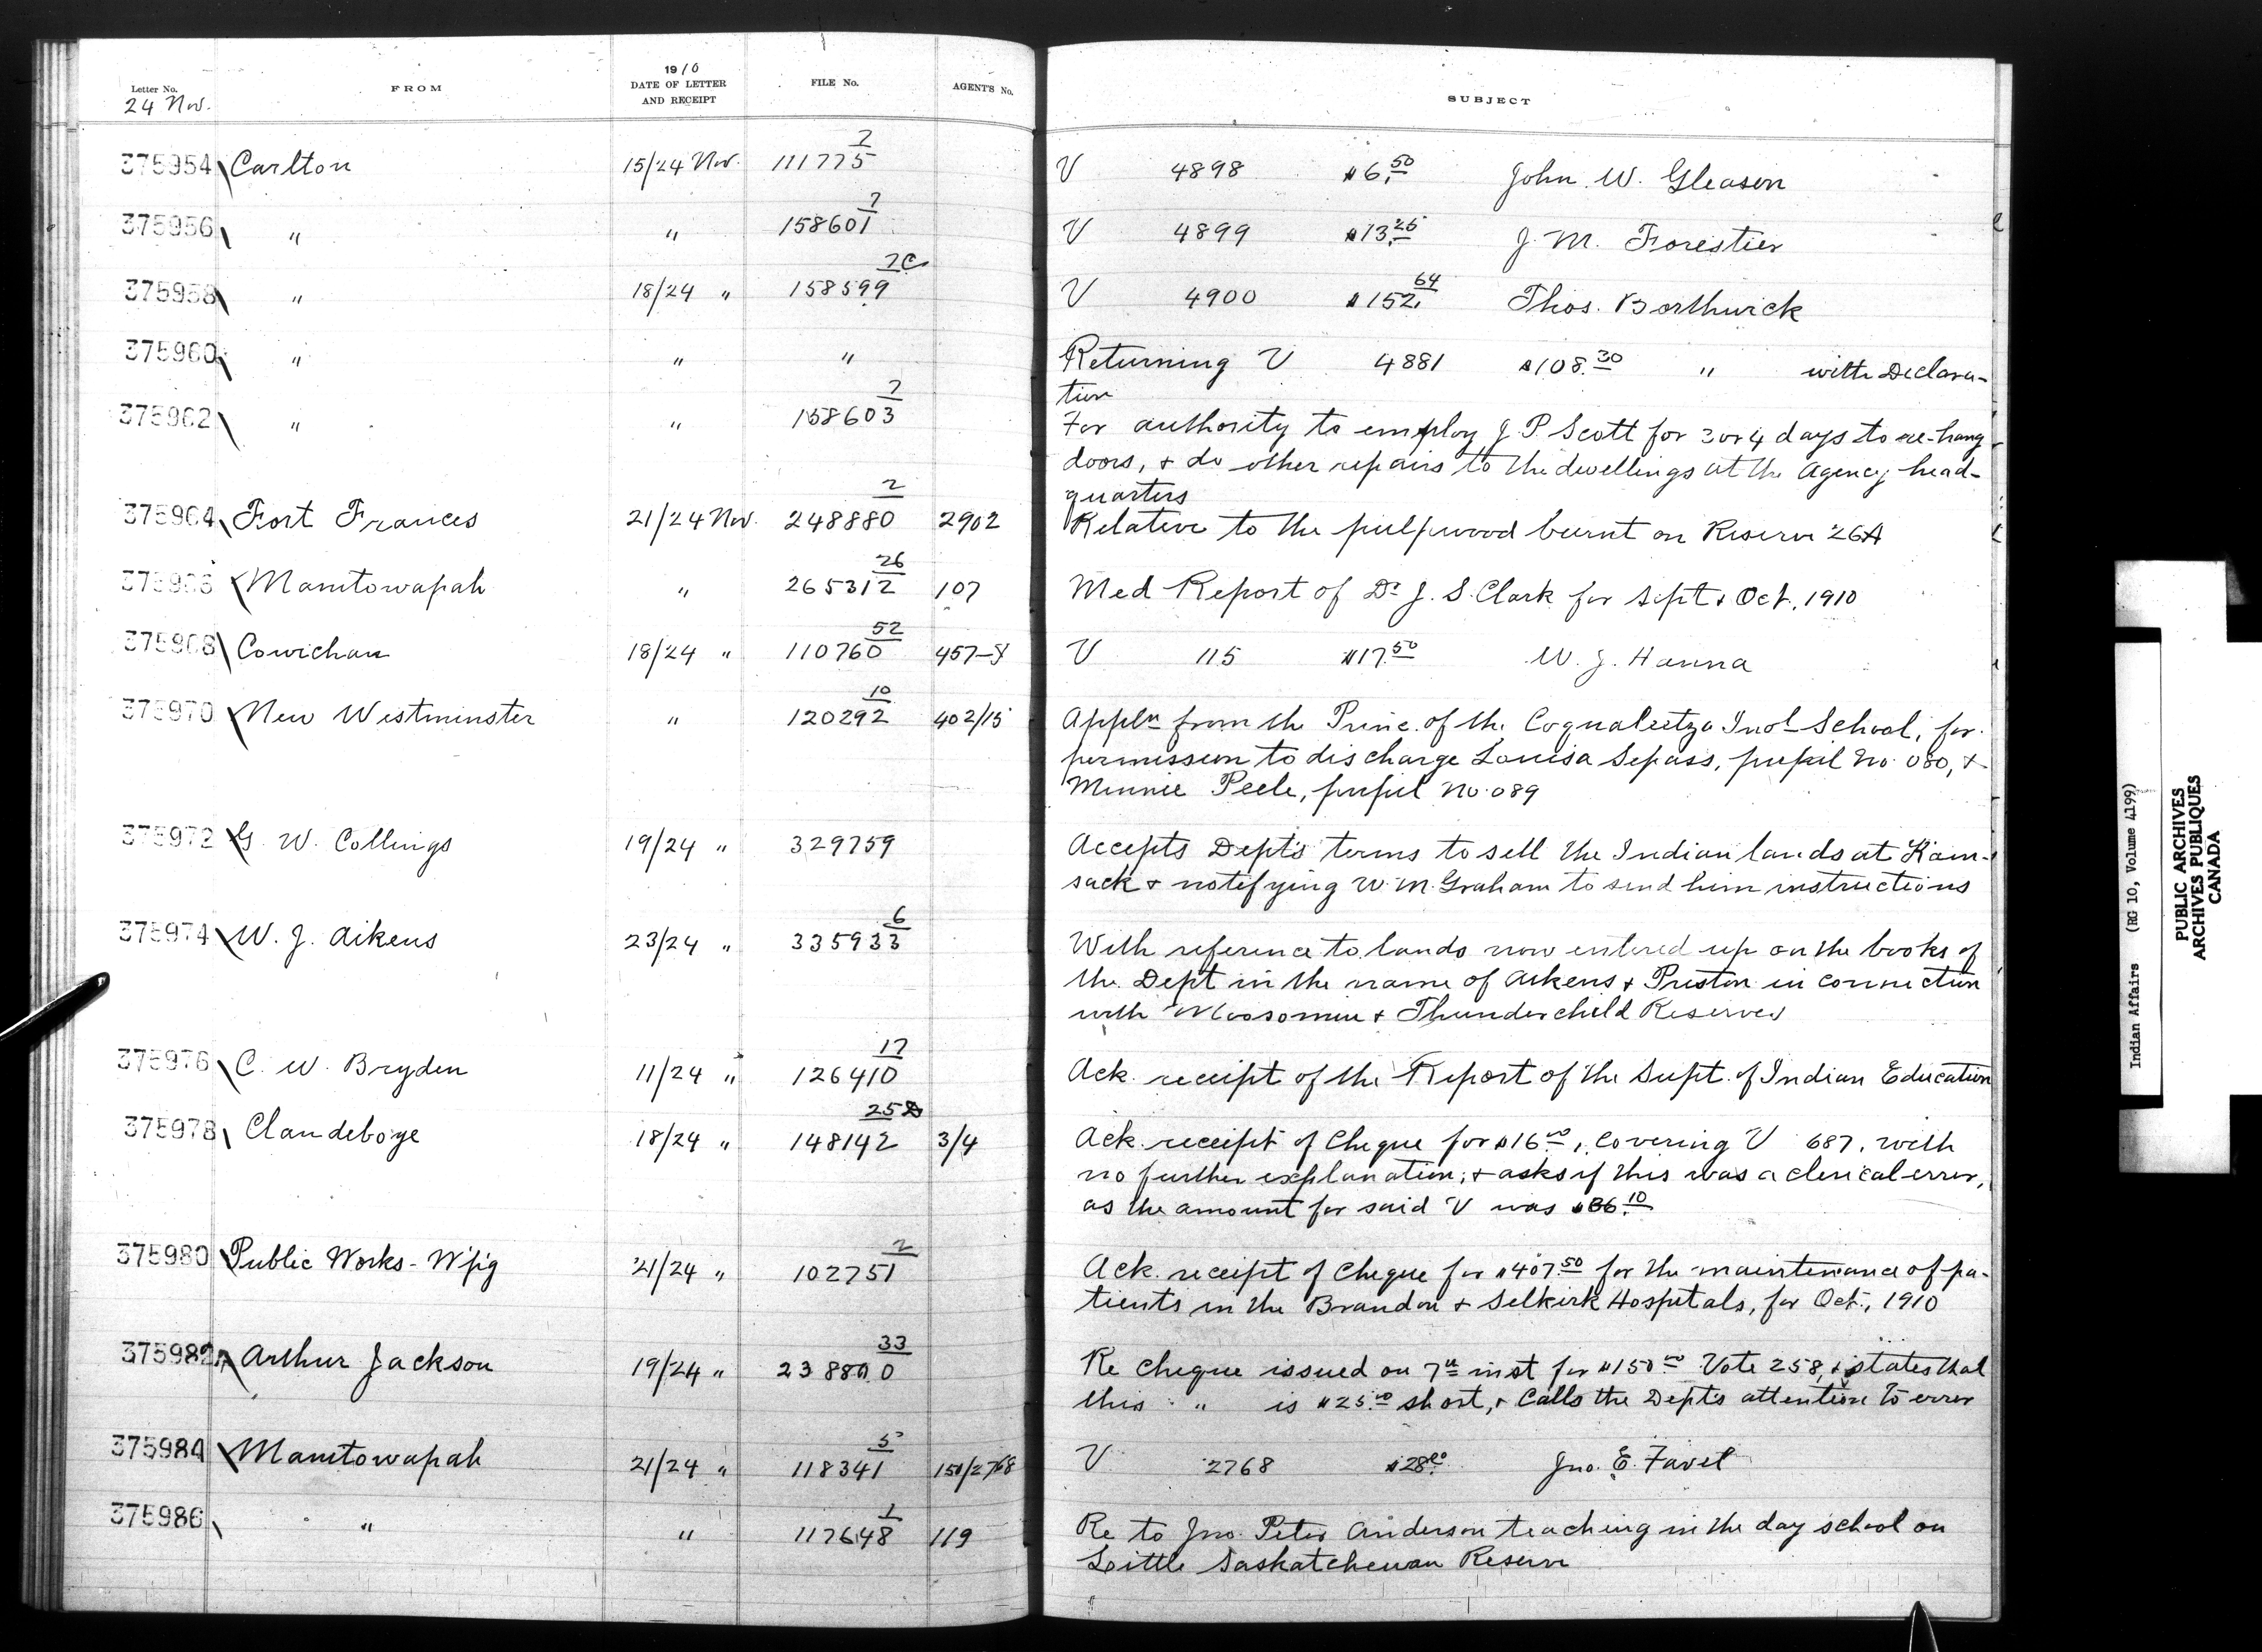 Letter No. FROM 1910 DATE OF LETTER AND RECEIPT FILE No. AGENT'S No. SUBJECT
24 Nov.
375954 Carlton 15/24 Nov. 111775 2 V 4898 $6.50 John W. Gleason
375956 " " 158601 7 V 4899 $13.25 J. M. Forestier
375958 " 18/24 " 158599 2C V 4900 $152.64 Thos. Borthwick
375960 " " " Returning V 4881 $108.30 " with Declara-
tion
375962 " " 158603 2 For authority to employ J. P. Scott for 3 or 4 days to re-hang
doors, & do other repairs to the dwellings at the Agency head-
quarters
375964 Fort Frances 21/24 Nov. 248880 2 2902 Relative to the pulpwood burnt on Reserve 26A
375966 Manitowapah " 265312 26 107 Med Report of Dr J. S. Clark for Sept & Oct. 1910
375968 Cowichan 18/24 " 110760 52 457-8 V 115 $17.50 W. J. Hanna
375970 New Westminster " 120292 10 402/15 Appln from the Princ. of the Coqualeetza Indl School, for
permission to discharge Louisa Sepass, pupil No. 080, &
Minnie Peele, pupil No. 089
375972 G. W. Collings 19/24 " 329759 Accepts Dept's terms to sell the Indian lands at Kam-
sack & notifying W. M. Graham to send him instructions
375974 W. J. Aikens 23/24 " 335933 6 With reference to lands now entered up on the books of
the Dept in the name of Aikens & Preston in connection
with Moosomin & Thunderchild Reserves
375976 C. W. Bryden 11/24 " 126410 17 Ack. receipt of the Report of the Supt. of Indian Education
375978 Clandeboye 18/24 " 148142 25 3/4 Ack. receipt of Cheque for $16.00, covering V 687, with
no further explanation; & asks if this was a clerical error,
as the amount for said V was $86.10
375980 Public Works - W'pig 21/24 " 102751 2 Ack. receipt of Cheque for $407.50 for the maintenance of pa-
tients in the Brandon & Selkirk Hospitals, for Oct., 1910
375982 Arthur Jackson 19/24 " 238800 33 Re Cheque issued on 7th inst for $150.00 Vote 258, & states that
this " is $25.00 short, & Calls the Dept's attention to error
375984 Manitowapah 21/24 " 118341 5 150/2768 V 2768 $28.00 Jno. E. Favel
375986 " " 117648 1 119 Re to Jno. Peter Anderson teaching in the day school on
Little Saskatchewan Reserve
Indian Affairs (RG 10, Volume 4199)
PUBLIC ARCHIVES
ARCHIVES PUBLIQUES
CANADA